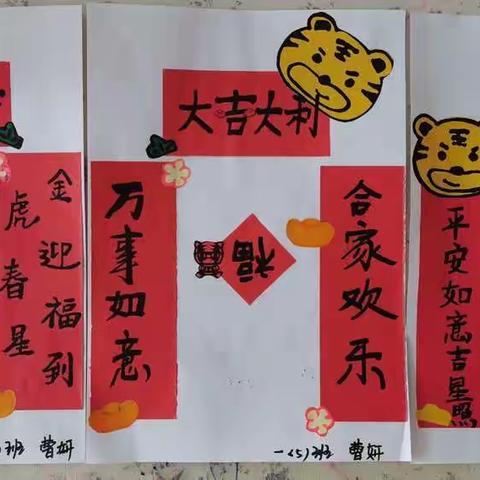 金虎迎春福星到
班 曹妍
大吉大利
万事如意
合家欢乐
福
一(5)班 曹妍
平安如意吉星照